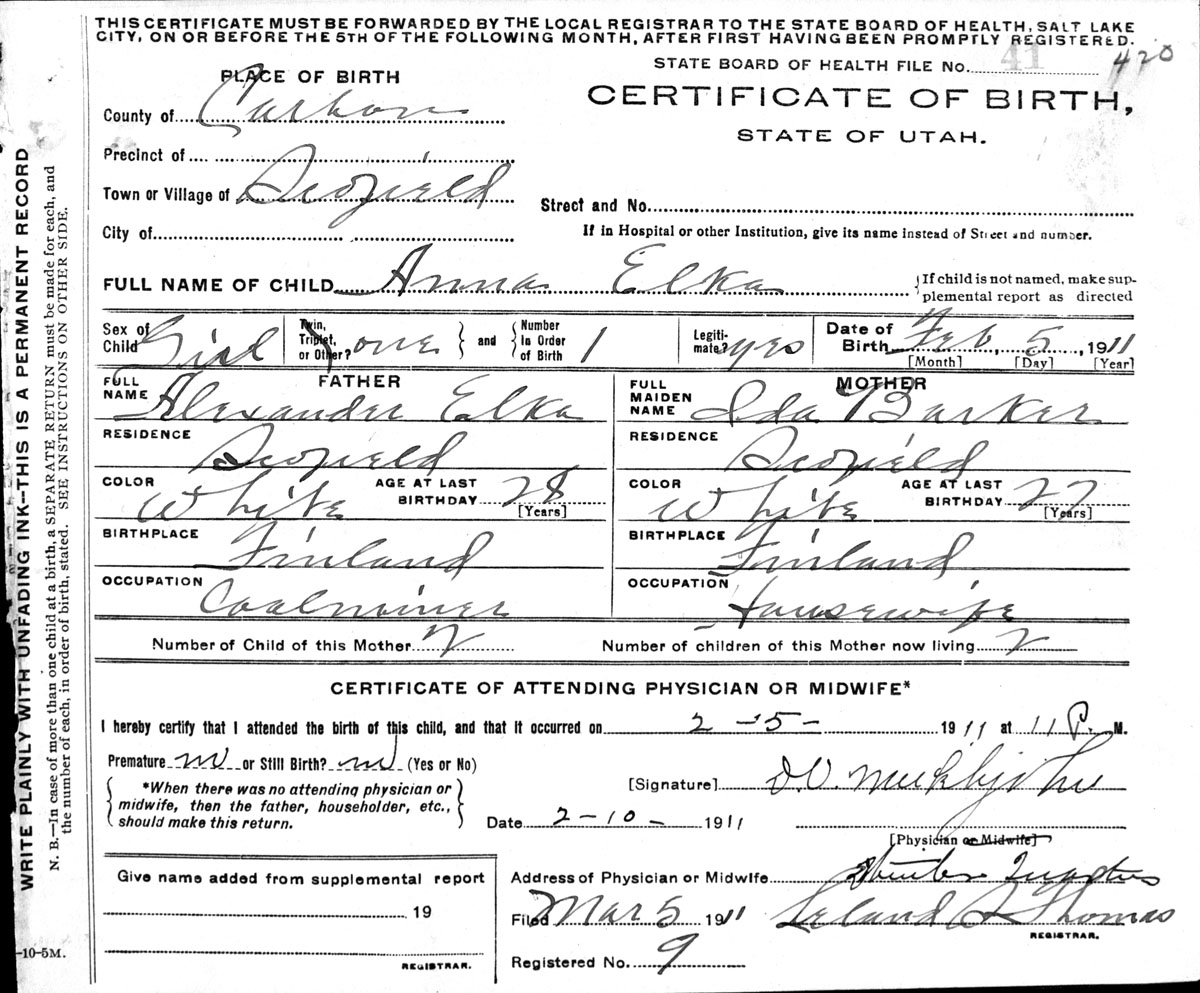 THIS CERTIFICATE MUST BE FORWARDED BY THE LOCAL REGISTRAR TO THE STATE BOARD OF HEALTH, SALT LAKE
CITY, ON OR BEFORE THE 5TH OF THE FOLLOWING MONTH, AFTER FIRST HAVING BEEN PROMPTLY REGISTERED.
STATE BOARD OF HEALTH FILE No. 41 420
PLACE OF BIRTH
CERTIFICATE OF BIRTH,
STATE OF UTAH.
County of Carbon
Precinct of
Town or Village of Scofield
Street and No.
City of
If in Hospital or other Institution, give its name instead of Street and number.
FULL NAME OF CHILD Anna Elka
If child is not named, make sup-
plemental report as directed
Sex of Child Girl
Twin, Triplet, or Other? one and Number In Order of Birth 1
Legiti-mate? yes
Date of Birth Feb, 5, 1911
[Month] [Day] [Year]
FATHER
FULL NAME Alexander Elka
RESIDENCE Scofield
COLOR White AGE AT LAST BIRTHDAY 28 [Years]
BIRTHPLACE Finland
OCCUPATION Coalminer
MOTHER
FULL MAIDEN NAME Ida Barker
RESIDENCE Scofield
COLOR White AGE AT LAST BIRTHDAY 27 [Years]
BIRTHPLACE Finland
OCCUPATION Housewife
Number of Child of this Mother 2 Number of children of this Mother now living 2
CERTIFICATE OF ATTENDING PHYSICIAN OR MIDWIFE*
I hereby certify that I attended the birth of this child, and that it occurred on 2-5- 1911 at 11 P. M.
Premature no or Still Birth? no (Yes or No)
*When there was no attending physician or
midwife, then the father, householder, etc.,
should make this return.
[Signature]
Date 2-10- 1911
[Physician or Midwife]
Give name added from supplemental report
19
REGISTRAR.
Address of Physician or Midwife Winter Quarters
Filed Mar 5 1911 Leland S Thomas
REGISTRAR.
Registered No. 9
WRITE PLAINLY WITH UNFADING INK--THIS IS A PERMANENT RECORD
N. B.—In case of more than one child at a birth, a SEPARATE RETURN must be made for each, and
the number of each, in order of birth, stated. SEE INSTRUCTION ON OTHER SIDE.
-10-5M.